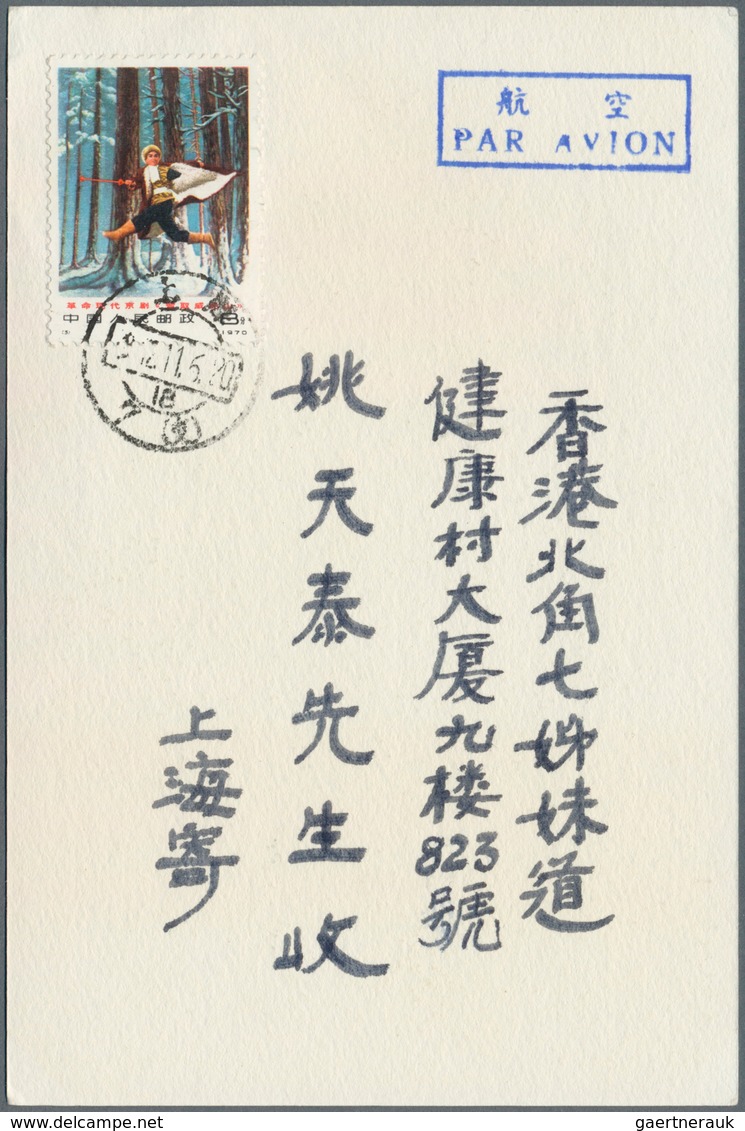 航 空
PAR AVION
革命现代京剧
中国人民邮政 8分
1970
上
12.11.6.20
18
香港北角七姊妹道
健康村大厦九楼823號
姚天泰先生收
上海寄
gaertnerauk